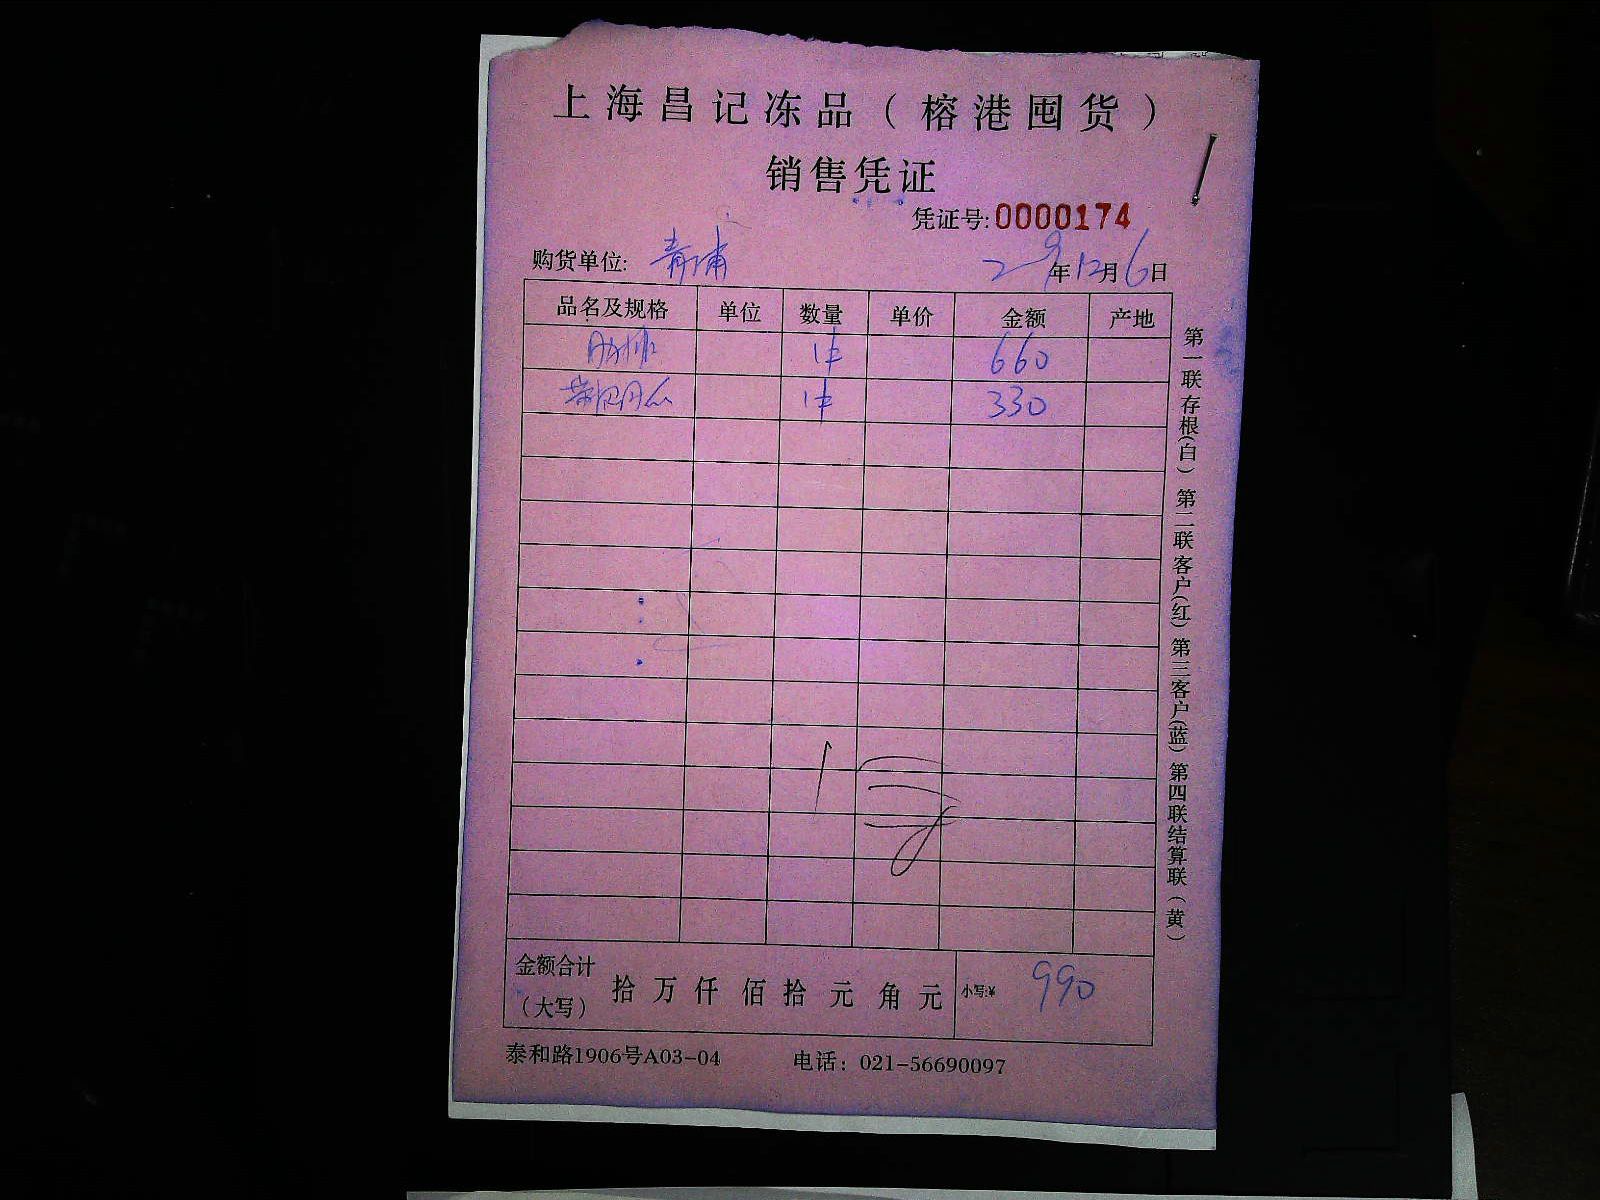 上海昌记冻品（榕港囤货）
销售凭证
凭证号:0000174
购货单位: 青浦 年12月6日
品名及规格 单位 数量 单价 金额 产地
肋排 1件 660
1件 330
金额合计（大写） 拾 万 仟 佰 拾 元 角 元 小写:¥ 990
泰和路1906号A03-04 电话：021-56690097
第一联存根(白) 第二联客户(红) 第三客户(蓝) 第四联结算联（黄）